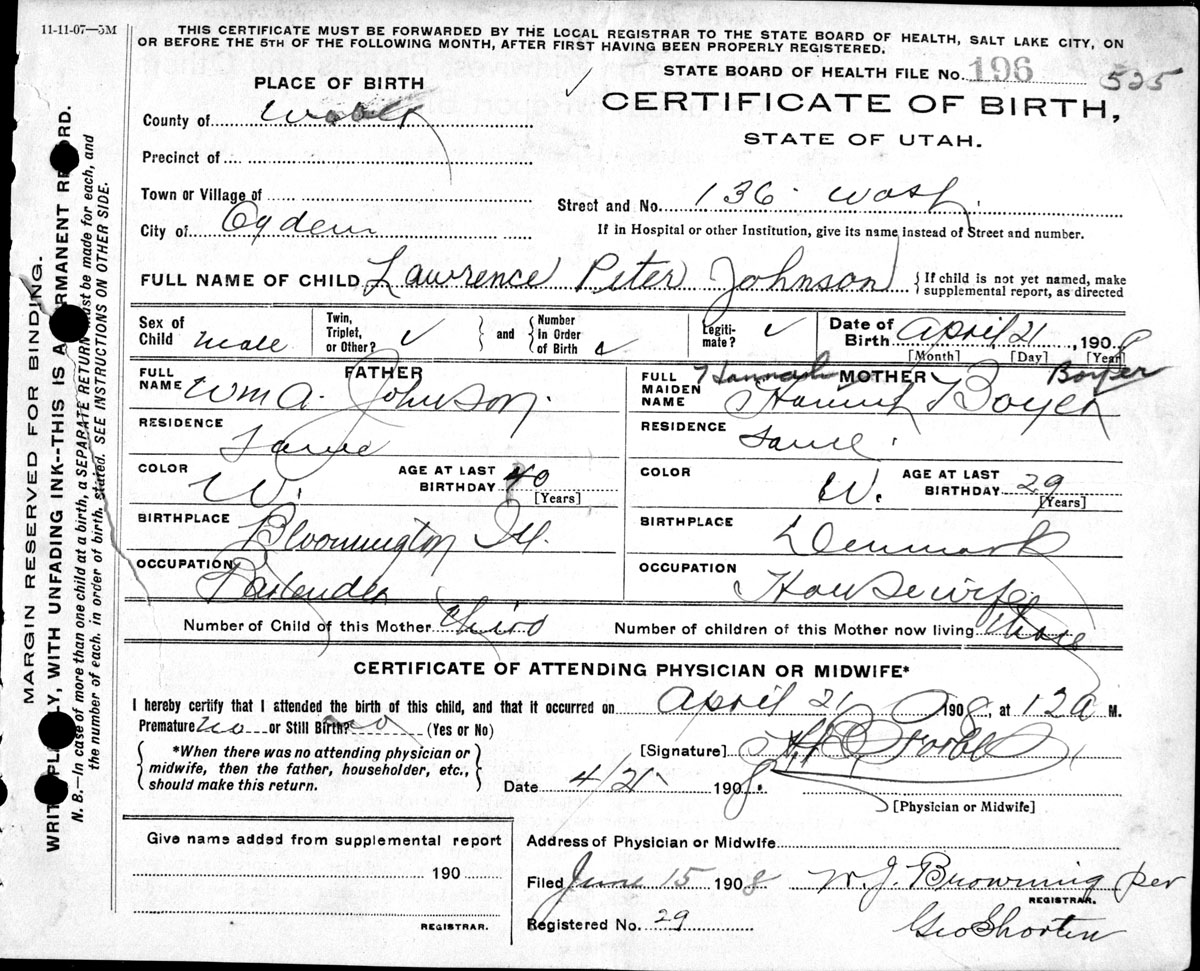 11-11-07—5M
THIS CERTIFICATE MUST BE FORWARDED BY THE LOCAL REGISTRAR TO THE STATE BOARD OF HEALTH, SALT LAKE CITY, ON
OR BEFORE THE 5TH OF THE FOLLOWING MONTH, AFTER FIRST HAVING BEEN PROPERLY REGISTERED.
STATE BOARD OF HEALTH FILE No. 196 525
PLACE OF BIRTH
CERTIFICATE OF BIRTH,
STATE OF UTAH.
County of
Precinct of
Town or Village of
Street and No. 136 Wash
City of Ogden
If in Hospital or other Institution, give its name instead of Street and number.
FULL NAME OF CHILD Lawrence Peter Johnson
{If child is not yet named, make
supplemental report, as directed
Sex of
Child Male
Twin,
Triplet,
or Other? ✓
} and {
Number
in Order
of Birth
Legiti-
mate? ✓
Date of
Birth April 21, 1908
[Month] [Day] [Year]
FATHER
FULL
NAME Wm A. Johnson.
RESIDENCE
Same
COLOR W.
AGE AT LAST
BIRTHDAY 40
[Years]
BIRTHPLACE
Bloomington Ill.
OCCUPATION
Bartender
MOTHER
FULL
MAIDEN
NAME Hannah Boyer
RESIDENCE
Same.
COLOR W.
AGE AT LAST
BIRTHDAY 29
[Years]
BIRTHPLACE
Denmark
OCCUPATION
Housewife
Number of Child of this Mother Third
Number of children of this Mother now living Three
CERTIFICATE OF ATTENDING PHYSICIAN OR MIDWIFE*
I hereby certify that I attended the birth of this child, and that it occurred on April 21 1908, at 12 a M.
Premature no or Still Birth? no (Yes or No)
{*When there was no attending physician or
midwife, then the father, householder, etc.,
should make this return.}
[Signature]
Date 4/21 1908.
[Physician or Midwife]
Give name added from supplemental report
190
REGISTRAR.
Address of Physician or Midwife
Filed June 15 1908 W. J. Browning per
REGISTRAR.
Registered No. 29
Geo Shorten
MARGIN RESERVED FOR BINDING.
WRITE PLAINLY, WITH UNFADING INK--THIS IS A PERMANENT RECORD.
N. B.—In case of more than one child at a birth, a SEPARATE RETURN must be made for each, and
the number of each, in order of birth, stated. SEE INSTRUCTIONS ON OTHER SIDE.